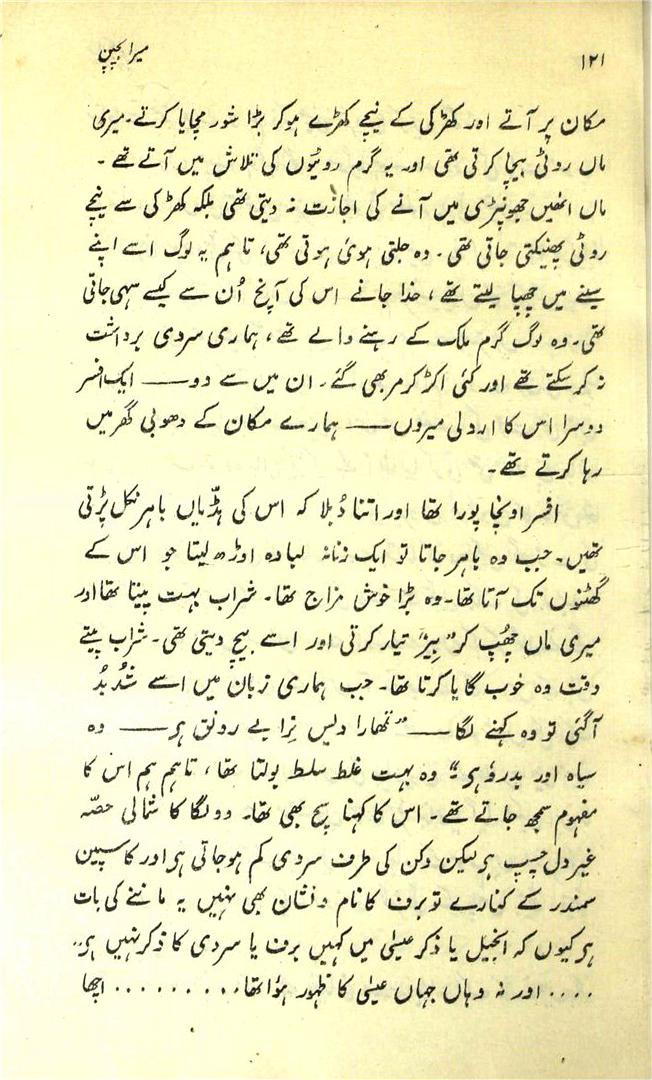 ۱۲۱ میرا بچپن
مکان پر آتے اور کھڑکی کے نیچے کھڑے ہوکر بڑا شور مچایا کرتے۔ میری
ماں روٹی بیچا کرتی تھی اور یہ گرم روٹیوں کی تلاش میں آتے تھے ۔
ماں انھیں جھونپڑی میں آنے کی اجازت نہ دیتی تھی بلکہ کھڑکی سے نیچے
روٹی پھینکتی جاتی تھی ۔ وہ جلتی ہوئی ہوتی تھی، تا ہم یہ لوگ اسے اپنے
سینے میں چھپا لیتے تھے ، خدا جانے اس کی آنچ اُن سے کیسے سہی جاتی
تھی۔ وہ لوگ گرم ملک کے رہنے والے تھے ، ہماری سردی برداشت
نہ کرسکتے تھے اور کئی اکڑ کر مر بھی گئے ۔ ان میں سے دو —— ایک افسر
دوسرا اس کا اردلی میروں —— ہمارے مکان کے دھوبی گھر میں
رہا کرتے تھے ۔
افسر اونچا پورا تھا اور اتنا دُبلا کہ اس کی ہڈیاں باہر نکل پڑتی
تھیں۔ جب وہ باہر جاتا تو ایک زنانہ لبادہ اوڑھ لیتا جو اس کے
گھٹنوں تک آتا تھا۔ وہ بڑا خوش مزاج تھا۔ شراب بہت پیتا تھا اور
میری ماں چھُپ کر ”بیئر“ تیار کرتی اور اسے بیچ دیتی تھی۔ شراب پیتے
وقت وہ خوب گایا کرتا تھا۔ جب ہماری زبان میں اسے شُدبُد
آگئی تو وہ کہنے لگا —— ”تمھارا دیس نِرا بے رونق ہی —— وہ
سیاہ اور بدرؤ ہی“ وہ بہت غلط سلط بولتا تھا ، تاہم ہم اس کا
مفہوم سمجھ جاتے تھے ۔ اس کا کہنا سچ بھی تھا۔ وولگا کا شمالی حصّہ
غیر دل چسپ ہی لیکن دکن کی طرف سردی کم ہوجاتی ہی اور کاسپین
سمندر کے کنارے تو برف کا نام و نشان بھی نہیں یہ ماننے کی بات
ہی کیوں کہ انجیل یا ذکر عیسیٰ میں کہیں برف یا سردی کا ذکر نہیں ہی..
.... اور نہ وہاں جہاں عیسیٰ کا ظہور ہؤا تھا.......... اچھا